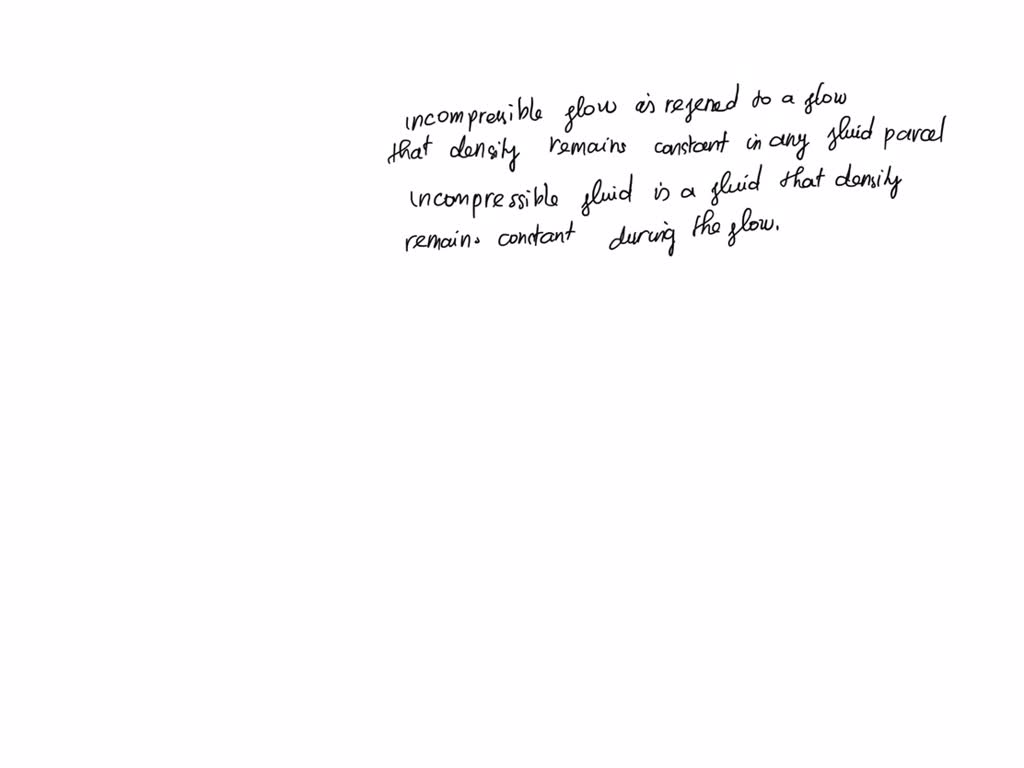 incompressible flow is refered to a flow
that density remains constant in any fluid parcel
incompressible fluid is a fluid that density
remains constant during the flow.